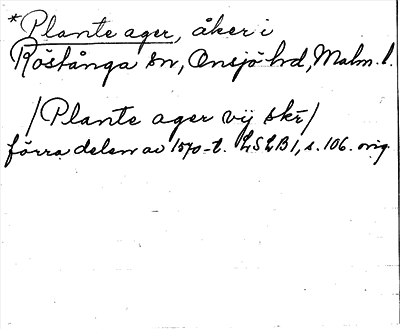 *Plante ager, åker i
Röstånga sn, Onsjö hd, Malm. l.
/Plante ager vij skr/
förra delen av 1570-t. LSLB1, s. 106. orig.